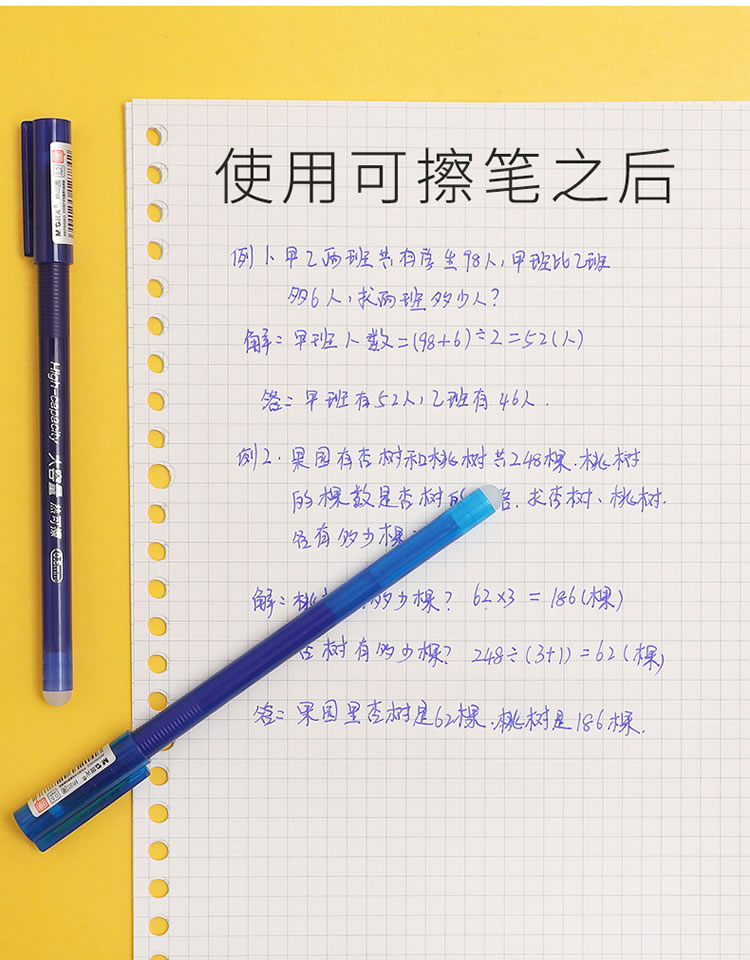 使用可擦笔之后
例1、甲乙两班共有学生98人,甲班比乙班
多6人,求两班多少人?
解:甲班人数=(98+6)÷2=52(人)
答:甲班有52人,乙班有46人.
例2.果园有杏树和桃树共248棵.桃树
的棵数是杏树的 倍.求杏树、桃树.
各有多少棵
解: 桃 多少棵? 62×3 = 186(棵)
杏树有多少棵? 248÷(3+1)=62(棵)
答:果园里杏树是62棵.桃树是186棵.
High-capacity 大容量 热可擦
0.5mm
M&G
M&G